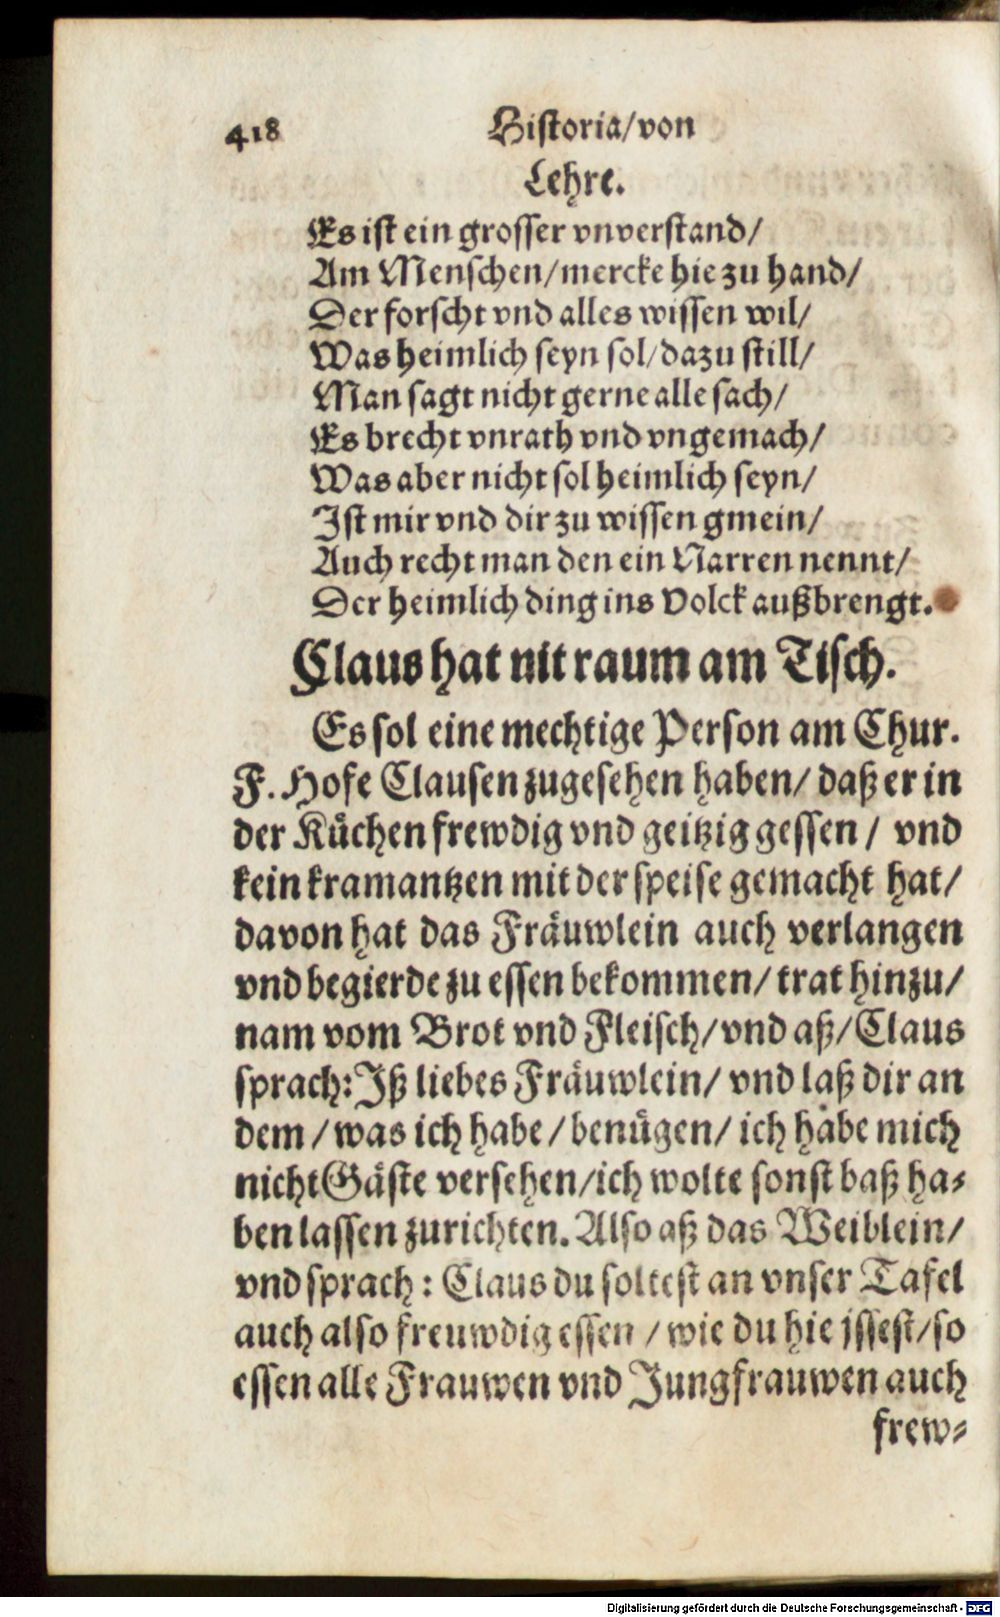 418 Historia/von
Lehre.
Es ist ein grosser vnverstand/
Am Menschen/mercke hie zu hand/
Der forscht vnd alles wissen wil/
Was heimlich seyn sol/dazu still/
Man sagt nicht gerne alle sach/
Es brecht vnrath vnd vngemach/
Was aber nicht sol heimlich seyn/
Ist mir vnd dir zu wissen gmein/
Auch recht man den ein Narren nennt/
Der heimlich ding ins Volck außbrengt.
Claus hat nit raum am Tisch.
Es sol eine mechtige Person am Chur.
F. Hofe Clausen zugesehen haben/ daß er in
der Küchen frewdig vnd geitzig gessen/ vnd
kein kramantzen mit der speise gemacht hat/
davon hat das Fräuwlein auch verlangen
vnd begierde zu essen bekommen/ trat hinzu/
nam vom Brot vnd Fleisch/vnd aß/Claus
sprach: Iß liebes Fräuwlein/ vnd laß dir an
dem/was ich habe/benügen/ ich habe mich
nicht Gäste versehen/ich wolte sonst baß ha-
ben lassen zurichten. Also aß das Weiblein/
vnd sprach: Claus du soltest an vnser Tafel
auch also freuwdig essen/wie du hie jssest/so
essen alle Frauwen vnd Jungfrauwen auch
frew-
Digitalisierung gefördert durch die Deutsche Forschungsgemeinschaft - DFG